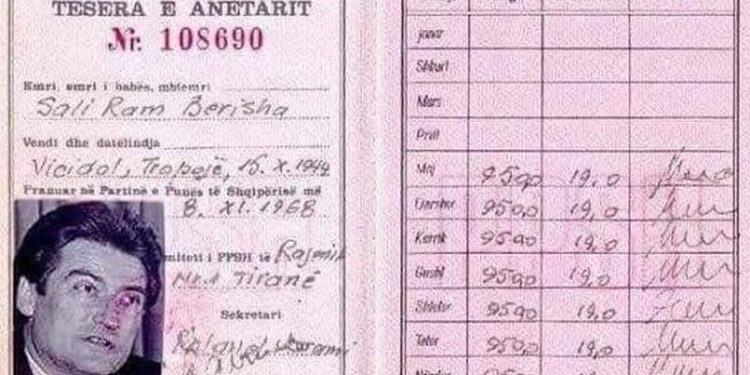 TESERA E ANËTARIT
Nr. 108690
Emri, emri i babës, mbiemri
Sali Ram Berisha
Vendi dhe datëlindja
Viçidol, Tropojë, 15.X.1944
Pranuar në Partinë e Punës të Shqipërisë më
8. XI. 1968
miteti i PPSH të Rajonit
Nr.4 Tiranë
Sekretari
janar
Shkurt
Mars
Prill
Maj 9590 19,0
Qershor 950,0 19,0
Korrik 9590 19,0
Gusht 9590 19,0
Shtator 9590 19,0
Tetor 9590 19,0